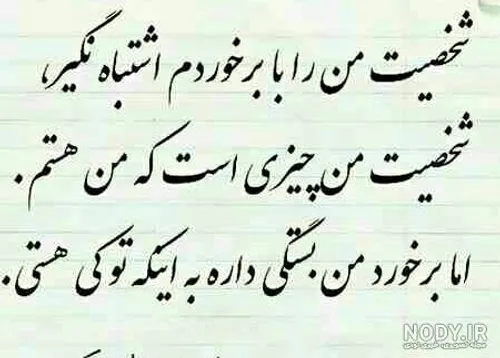 شخصیت من را با برخوردم اشتباه نگیر،
شخصیت من چیزی است که من هستم .
اما برخورد من بستگی داره به اینکه تو کی هستی .
NODY.IR